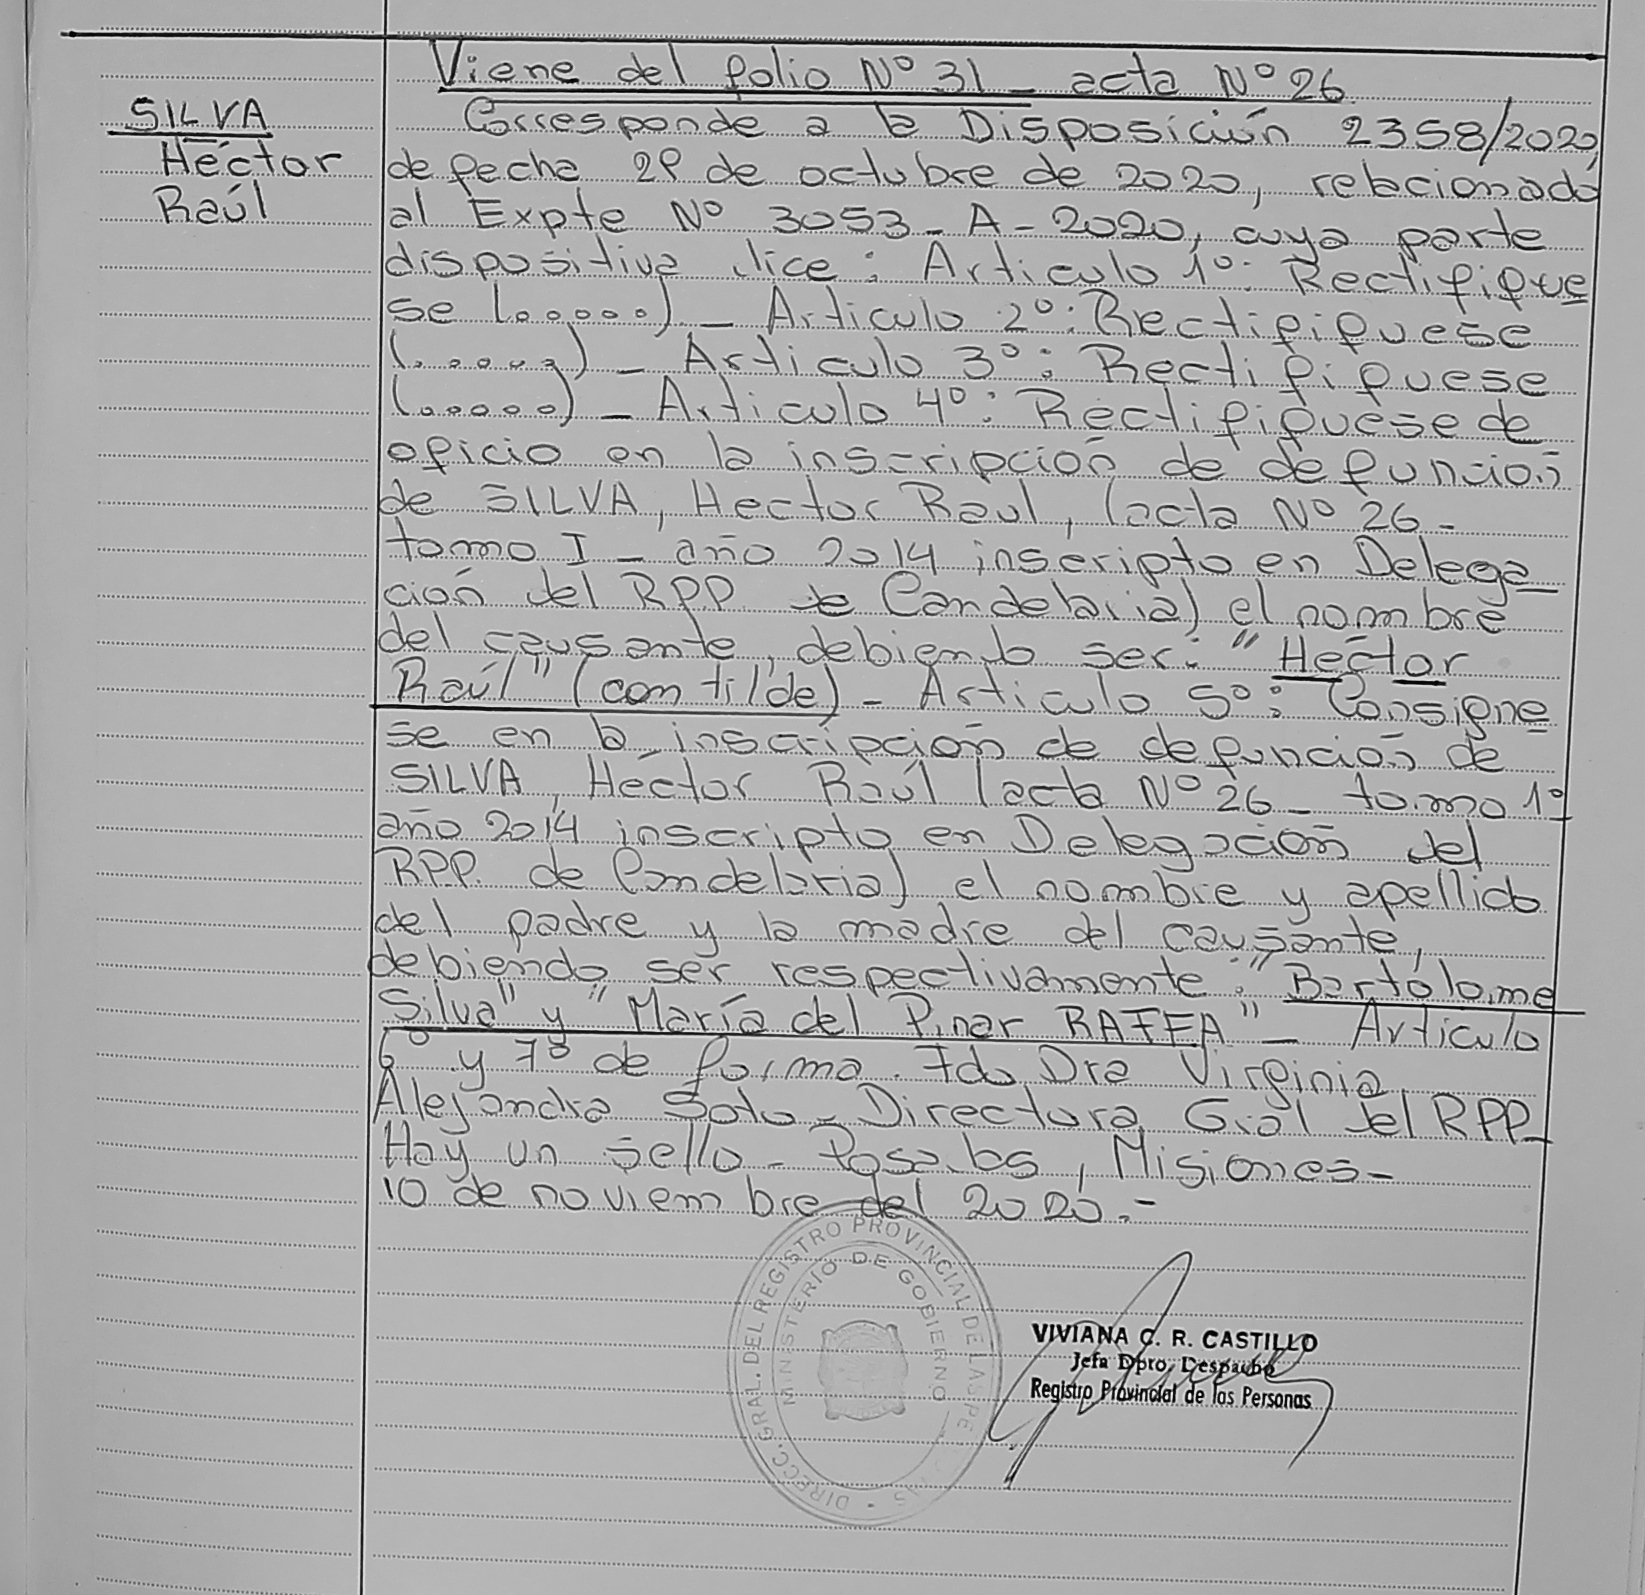 Viene del folio Nº 31 - acta Nº 26
SILVA
Héctor
Raúl
Corresponde a la Disposición 2358/2020,
de fecha 29 de octubre de 2020, relacionado
al Expte Nº 3053-A-2020, cuya parte
dispositiva dice: Articulo 1º: Rectifique
se (.....) - Articulo 2º: Rectifiquese
(.....) - Articulo 3º: Rectifiquese
(.....) - Articulo 4º: Rectifiquese de
oficio en la inscripción de defunción
de SILVA, Hector Raul, (acta Nº 26 -
tomo I - año 2014 inscripto en Delega
ción del RPP de Candelaria) el nombre
del causante, debiendo ser: "Héctor
Raúl" (con tilde) - Articulo 5º: Consigne
se en la inscripción de defunción de
SILVA, Héctor Raúl (acta Nº 26 - tomo 1º
año 2014 inscripto en Delegación del
RPP. de Candelaria) el nombre y apellido
del padre y la madre del causante,
debiendo ser respectivamente: "Bartólome
Silva" y "María del Pinar RAFFA" - Articulo
6º y 7º de forma. Fdo Dra Virginia
Alejandra Soto - Directora Gral del RPP -
Hay un sello - Posadas, Misiones -
10 de noviembre del 2020.-
DIRECC. GRAL. DEL REGISTRO PROVINCIAL DE LAS PE
MINISTERIO DE GOBIERNO
VIVIANA C. R. CASTILLO
Jefa Dpto, Despacho
Registro Provincial de las Personas